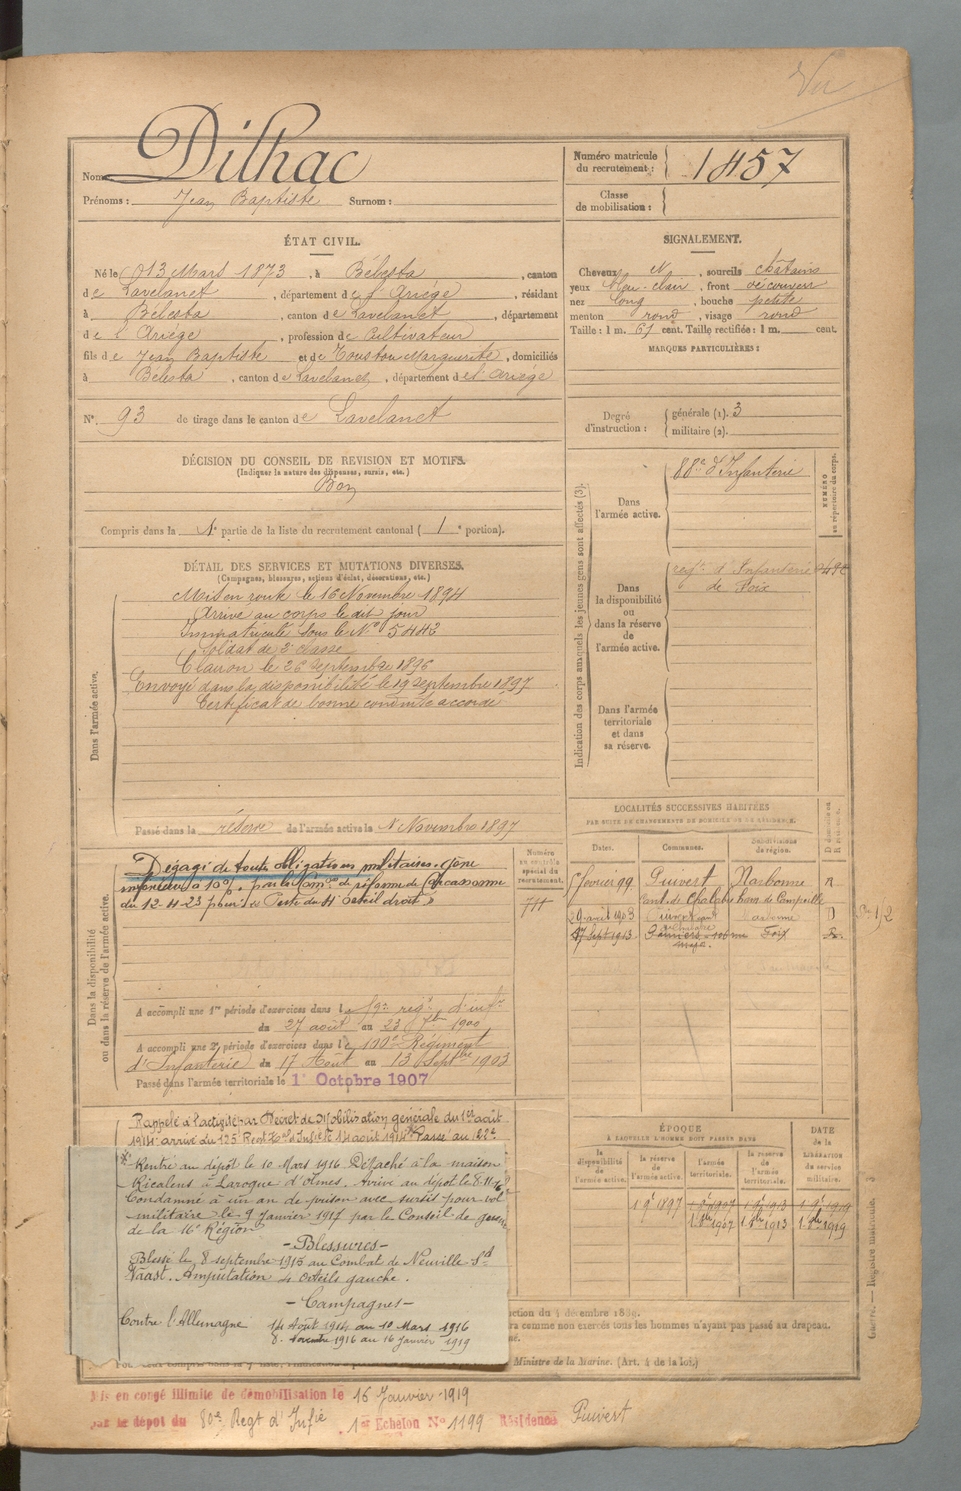 Vu
Nom : Dilhac
Prénoms : Jean Baptiste Surnom :
Numéro matricule du recrutement : 1457
Classe de mobilisation :
ÉTAT CIVIL.
Né le 13 Mars 1873, à Bélesta, canton
de Lavelanet, département de l'Ariége, résidant
à Bélesta, canton de Lavelanet, département
de l'Ariége, profession de Cultivateur
fils de Jean Baptiste et de Touston Marguerite, domiciliés
à Bélesta, canton de Lavelanet, département de l'Ariége
N° 93 de tirage dans le canton de Lavelanet
SIGNALEMENT.
Cheveux N, sourcils chatains
yeux bleu-clair, front découvert
nez long, bouche petite
menton rond, visage rond
Taille : 1 m. 61 cent. Taille rectifiée : 1 m. cent.
MARQUES PARTICULIÈRES :
Degré d'instruction : générale (1). 3
militaire (2).
DÉCISION DU CONSEIL DE REVISION ET MOTIFS.
(Indiquer la nature des dispenses, sursis, etc.)
Bon
Compris dans la 1e partie de la liste du recrutement cantonal (1e portion).
DÉTAIL DES SERVICES ET MUTATIONS DIVERSES.
(Campagnes, blessures, actions d'éclat, décorations, etc.)
Dans l'armée active.
Mis en route le 16 Novembre 1894
Arrivé au corps le dit jour
Immatriculé sous le N° 5442
Soldat de 2e classe
Clairon le 26 septembre 1896
Envoyé dans la disponibilité le 19 septembre 1897
Certificat de bonne conduite accordé
Passé dans la réserve de l'armée active le 1er Novembre 1897
Indication des corps auxquels les jeunes gens sont affectés (3).
NUMÉRO au répertoire du corps.
Dans l'armée active.
88e d'Infanterie
Dans la disponibilité ou dans la réserve de l'armée active.
regt d'Infanterie
de Foix
Dans l'armée territoriale et dans sa réserve.
Dans la disponibilité ou dans la réserve de l'armée active.
Numéro au contrôle spécial du recrutement.
Dégagé de toutes obligations militaires. Gêne
inférieure à 10%, par la Comon de réforme de Carcassonne
du 12-4-23 pour : « Perte du 4e orteil droit »
A accompli une 1re période d'exercices dans le 59e regt d'infie
du 27 août au 23 7bre 1900
A accompli une 2e période d'exercices dans le 100e Régiment
d'Infanterie du 17 Août au 13 Septbre 1903
Passé dans l'armée territoriale le 1er Octobre 1907
LOCALITÉS SUCCESSIVES HABITÉES
PAR SUITE DE CHANGEMENTS DE DOMICILE OU DE RÉSIDENCE.
Dates. Communes. Subdivisions de région.
février 99 Puivert Narbonne R
cant. de Chalabre
1903 Puivert Narbonne D
17 Sept 1913 Foix R
Rappelé à l'activité par Décret de Mobilisation générale du 1er août
1914. arrivé du 125e Regt Ter Infie le 14 août 1914. Passé au
Rentré au dépôt le 10 Mars 1916 Détaché à la maison
Ricalens à Laroque d'Olmes. Arrivé au dépot le 8-11-16
Condamné à un an de prison avec sursis pour vol
militaire le 9 Janvier 1917 par le Conseil de guerre
de la 16e Région
- Blessures -
Blessé le 8 septembre 1915 au Combat de Neuville St
Vaast. Amputation 4 orteils gauche.
- Campagnes -
Contre l'Allemagne 14 Août 1914 au 10 Mars 1916
8 Novembre 1916 au 16 Janvier 1919
ÉPOQUE
À LAQUELLE L'HOMME DOIT PASSER DANS
DATE de la LIBÉRATION du service militaire.
la disponibilité de l'armée active. la réserve de l'armée active. l'armée territoriale. la réserve de l'armée territoriale.
1 9e 1897 1 9e 1907 1 9e 1913 1 9e 1919
1 8bre 1907 1 8bre 1913 1 8bre 1919
comme non exercés tous les hommes n'ayant pas passé au drapeau.
Ministre de la Marine. (Art. 4 de la loi.)
Guerre. — Registre matricule. 3
Mis en congé illimité de démobilisation le 16 Janvier 1919
par le dépot du 80e Regt d'Infie 1er Echelon N° 1199 Résidence Puivert